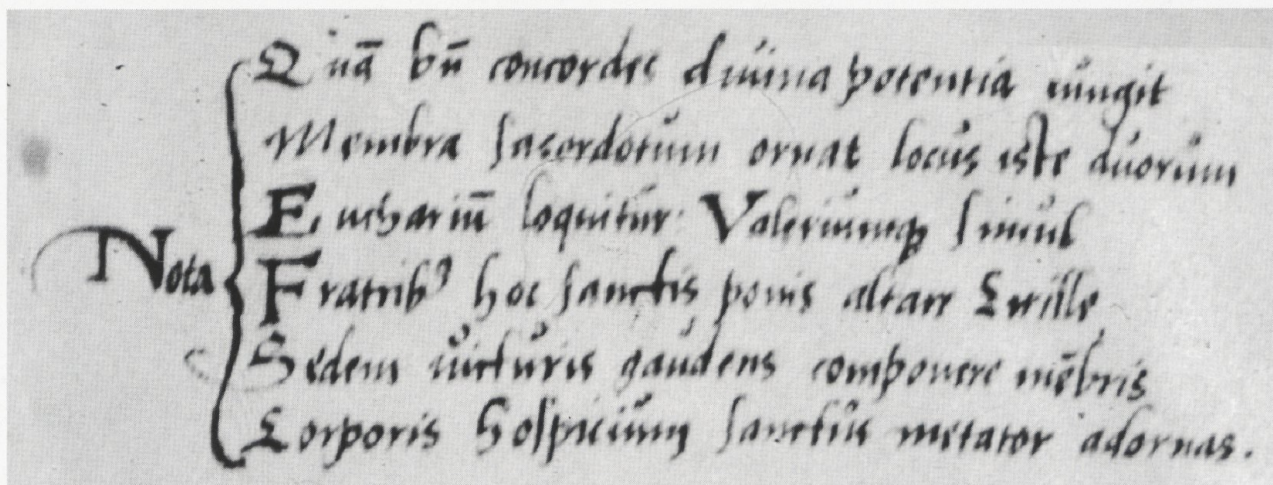 Quā bn̄ concordes diuina potentia iungit
Membra sacerdotum ornat locus iste duorum
Euchariū loquitur Valeriumqꝫ simul
Nota
Fratribꝰ hoc sanctis ponis altare Cirille
Sedem uicturis gaudens componere mēbris
Corporis hospicium sanctus metator adornas.